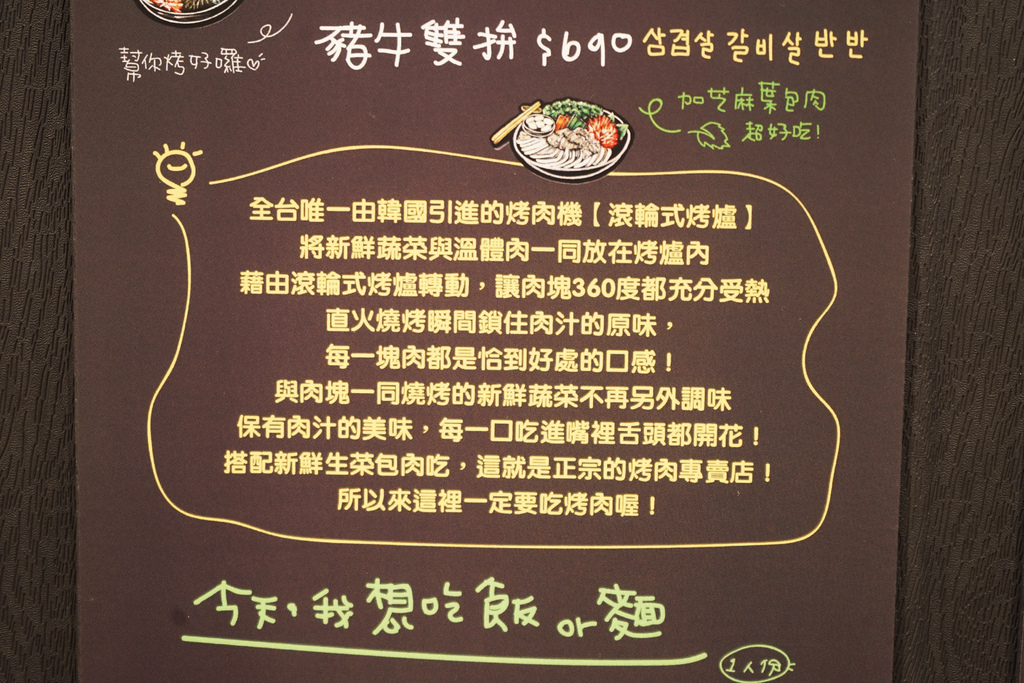 豬牛雙拚 $690 삼겹살 갈비살 반반
幫你烤好囉
加芝麻葉包肉
超好吃!
全台唯一由韓國引進的烤肉機【滾輪式烤爐】
將新鮮蔬菜與溫體肉一同放在烤爐內
藉由滾輪式烤爐轉動，讓肉塊360度都充分受熱
直火燒烤瞬間鎖住肉汁的原味，
每一塊肉都是恰到好處的口感！
與肉塊一同燒烤的新鮮蔬菜不再另外調味
保有肉汁的美味，每一口吃進嘴裡舌頭都開花！
搭配新鮮生菜包肉吃，這就是正宗的烤肉專賣店！
所以來這裡一定要吃烤肉喔！
今天，我想吃飯 or 麵
1人份